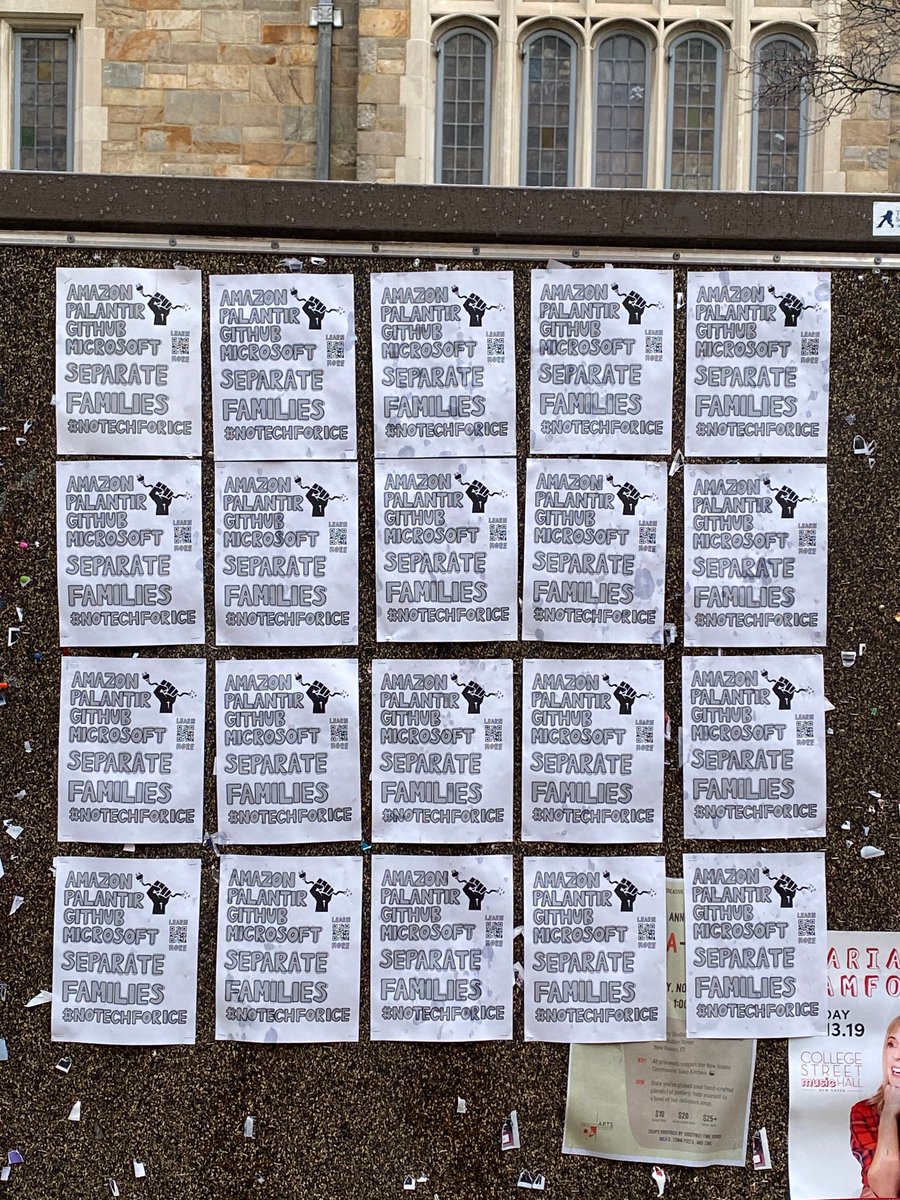 AMAZON
PALANTIR
GITHUB
MICROSOFT
LEARN
MORE
SEPARATE
FAMILIES
#NOTECHFORICE
AMAZON
PALANTIR
GITHUB
MICROSOFT
LEARN
MORE
SEPARATE
FAMILIES
#NOTECHFORICE
AMAZON
PALANTIR
GITHUB
MICROSOFT
LEARN
MORE
SEPARATE
FAMILIES
#NOTECHFORICE
AMAZON
PALANTIR
GITHUB
MICROSOFT
LEARN
MORE
SEPARATE
FAMILIES
#NOTECHFORICE
AMAZON
PALANTIR
GITHUB
MICROSOFT
LEARN
MORE
SEPARATE
FAMILIES
#NOTECHFORICE
AMAZON
PALANTIR
GITHUB
MICROSOFT
LEARN
MORE
SEPARATE
FAMILIES
#NOTECHFORICE
AMAZON
PALANTIR
GITHUB
MICROSOFT
LEARN
MORE
SEPARATE
FAMILIES
#NOTECHFORICE
AMAZON
PALANTIR
GITHUB
MICROSOFT
LEARN
MORE
SEPARATE
FAMILIES
#NOTECHFORICE
AMAZON
PALANTIR
GITHUB
MICROSOFT
LEARN
MORE
SEPARATE
FAMILIES
#NOTECHFORICE
AMAZON
PALANTIR
GITHUB
MICROSOFT
LEARN
MORE
SEPARATE
FAMILIES
#NOTECHFORICE
AMAZON
PALANTIR
GITHUB
MICROSOFT
LEARN
MORE
SEPARATE
FAMILIES
#NOTECHFORICE
AMAZON
PALANTIR
GITHUB
MICROSOFT
LEARN
MORE
SEPARATE
FAMILIES
#NOTECHFORICE
AMAZON
PALANTIR
GITHUB
MICROSOFT
LEARN
MORE
SEPARATE
FAMILIES
#NOTECHFORICE
AMAZON
PALANTIR
GITHUB
MICROSOFT
LEARN
MORE
SEPARATE
FAMILIES
#NOTECHFORICE
AMAZON
PALANTIR
GITHUB
MICROSOFT
LEARN
MORE
SEPARATE
FAMILIES
#NOTECHFORICE
AMAZON
PALANTIR
GITHUB
MICROSOFT
LEARN
MORE
SEPARATE
FAMILIES
#NOTECHFORICE
AMAZON
PALANTIR
GITHUB
MICROSOFT
LEARN
MORE
SEPARATE
FAMILIES
#NOTECHFORICE
AMAZON
PALANTIR
GITHUB
MICROSOFT
LEARN
MORE
SEPARATE
FAMILIES
#NOTECHFORICE
AMAZON
PALANTIR
GITHUB
MICROSOFT
LEARN
MORE
SEPARATE
FAMILIES
#NOTECHFORICE
AMAZON
PALANTIR
GITHUB
MICROSOFT
LEARN
MORE
SEPARATE
FAMILIES
#NOTECHFORICE
New Haven, CT
WHY All proceeds support the New Haven
Community Soup Kitchen
HOW Once you've picked your hand-crafted
$10 $20 $25+
ARTS
ARIA
AMFO
DAY
13.19
COLLEGE
STREET
music HALL
NEW HAVEN